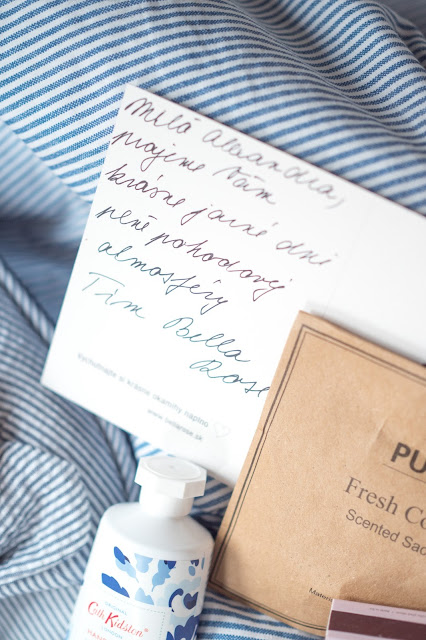 Milá Alexandra,
prajeme Vám
krásne jarné dni
plné pohodovej
atmosféry
Tím Bella
Rose
Vychutnajte si krásne okamihy naplno
www.bellarose.sk
PU
Fresh Co
Scented Sac
ORIGINAL
Cath Kidston
LONDON
HAND